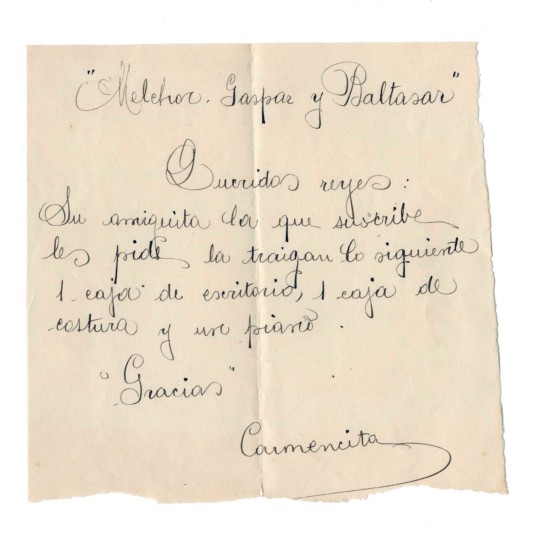 "Melchor. Gaspar y Baltasar"
Queridos reyes:
Su amiguita la que suscribe
les pide la traigan lo siguiente
1 caja de escritorio, 1 caja de
costura y un piano.
"Gracias"
Carmencita